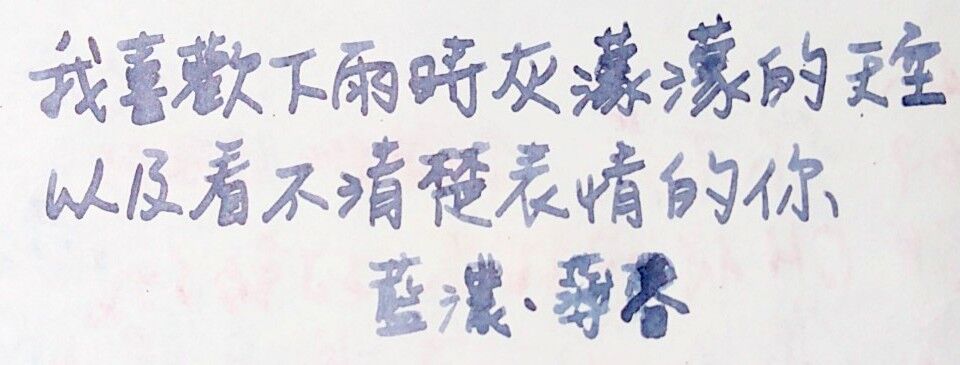 我喜歡下雨時灰濛濛的天空
以及看不清楚表情的你、
藍濃·尋容